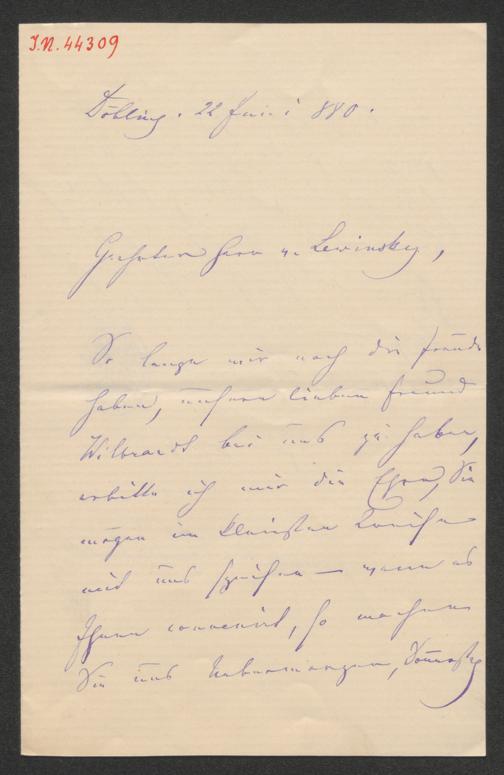 I.N. 44309
Döbling. 22 Juni 880.
Geehrter Herr v. Lewinsky,
So lange wir noch die Freude
haben, unsern lieben Freund
Wilbrandt bei uns zu haben,
erbitte ich mir die Ehre, Sie
mögen im kleinsten Kreise
mit uns speisen — wenn es
Ihnen convenirt, so machen
Sie uns Uebermorgen, Donnerstag